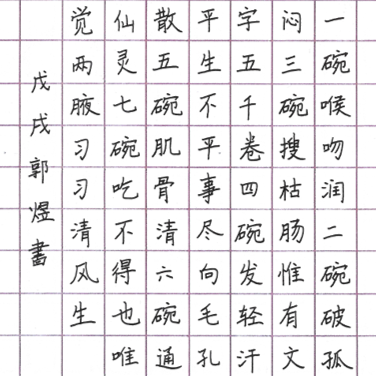 一碗喉吻润二碗破孤
闷三碗搜枯肠惟有文
字五千卷四碗发轻汗
平生不平事尽向毛孔
散五碗肌骨清六碗通
仙灵七碗吃不得也唯
觉两腋习习清风生
戊戌郭煜書